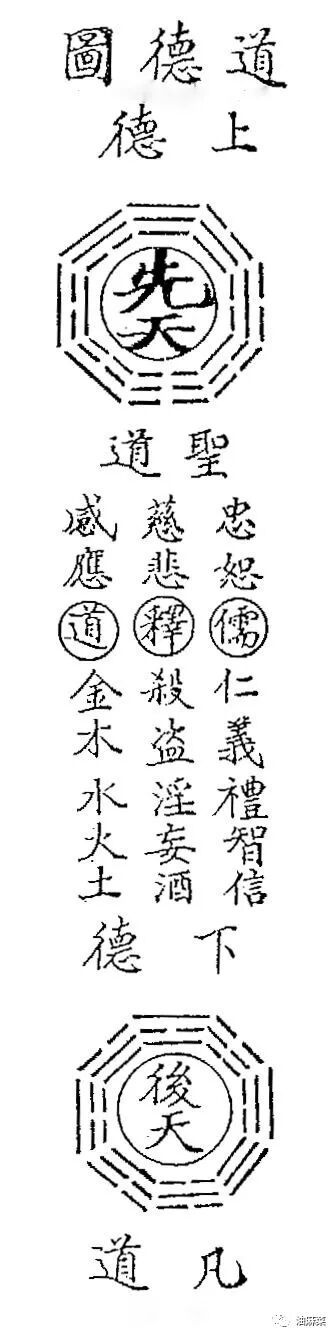 道德圖
上德
先天
聖道
忠恕
儒
仁義禮智信
慈悲
釋
殺盜淫妄酒
感應
道
金木水火土
下德
後天
凡道
油麻菜